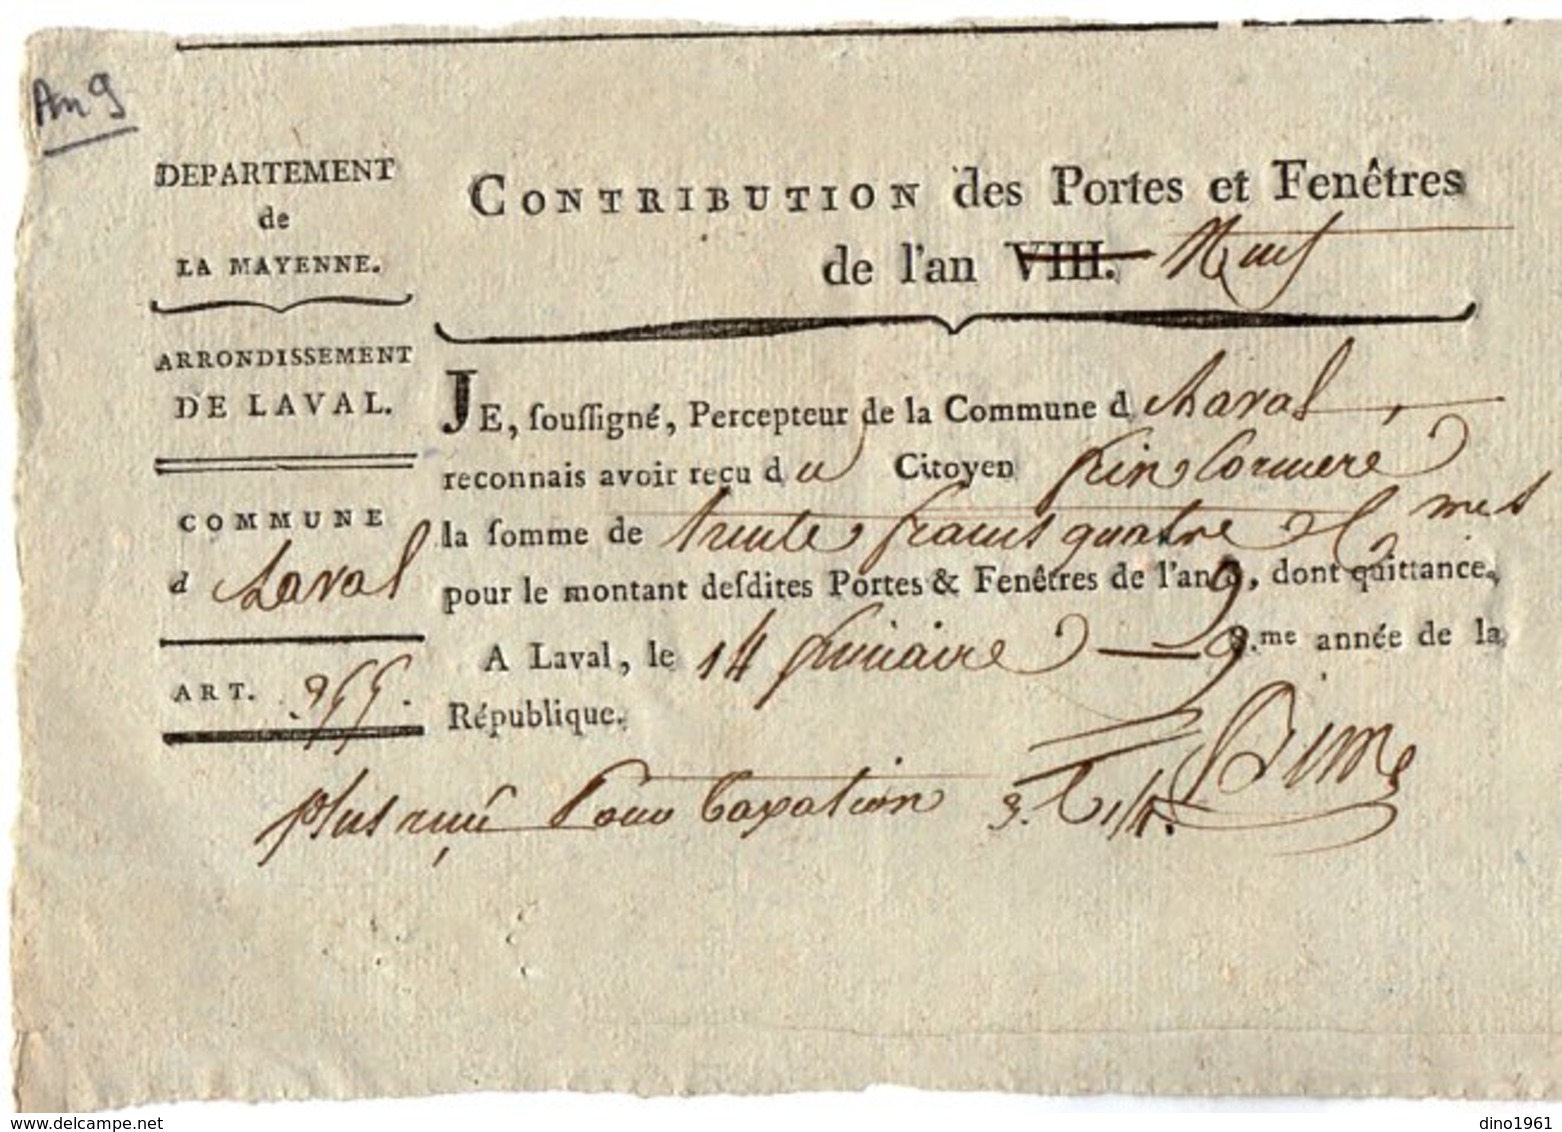 An 9
DEPARTEMENT
de
LA MAYENNE.
ARRONDISSEMENT
DE LAVAL.
COMMUNE
d Laval
ART. 955.
CONTRIBUTION des Portes et Fenêtres
de l'an VIII. Neuf
JE, ſouſſigné, Percepteur de la Commune d Laval
reconnais avoir reçu du Citoyen
la ſomme de trente francs quatre
pour le montant deſdites Portes & Fenêtres de l'an 9, dont quittance.
A Laval, le 14 frimaire 9.me année de la
République.
plus reçu pour taxation
www.delcampe.net
dino1961